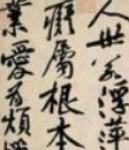 人世若浮萍
癡屬根本
業愛為煩惱